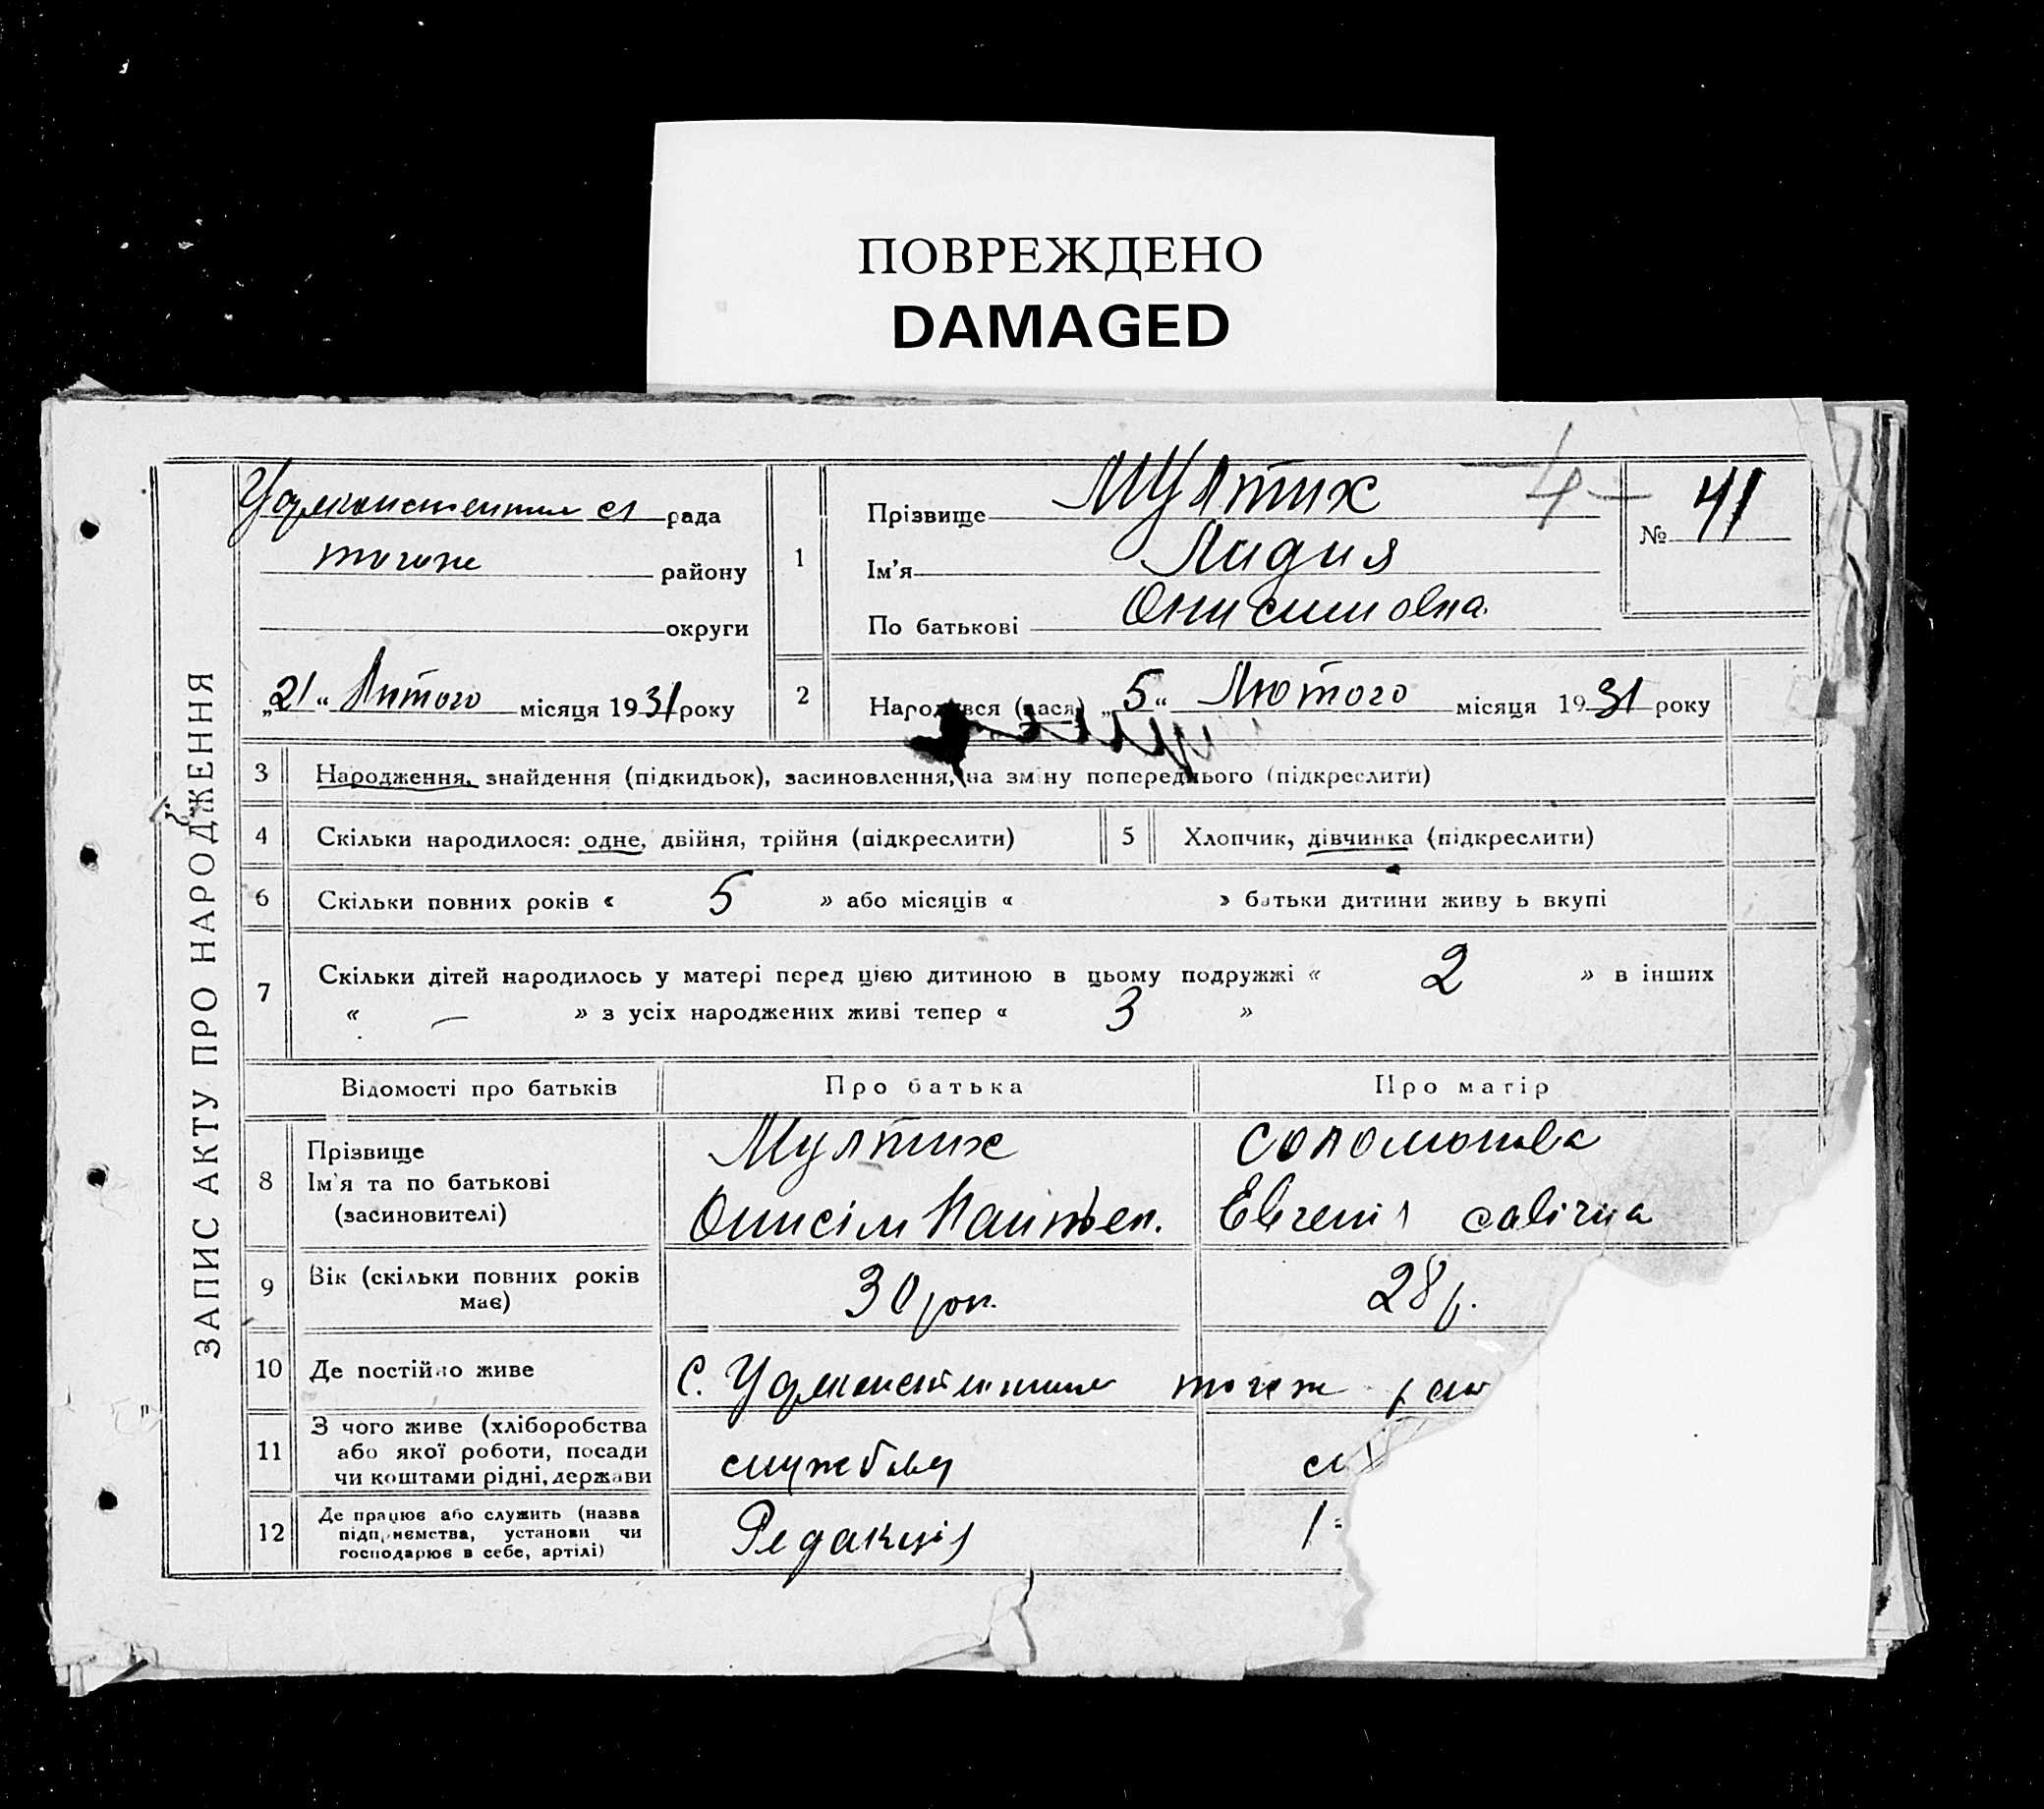 ПОВРЕЖДЕНО
DAMAGED
ЗАПИС АКТУ ПРО НАРОДЖЕННЯ
рада
тогож району
округи
„21“ Лютого місяця 1931 року
1
Прізвище Мултих
Ім'я Лидия
По батькові Онисимовна
4
№ 41
2
Народився (лася) „5“ Лютого місяця 1931 року
3 Народження, знайдення (підкидьок), засиновлення, на зміну попереднього (підкреслити)
4 Скільки народилося: одне, двійня, трійня (підкреслити)
5 Хлопчик, дівчинка (підкреслити)
6 Скільки повних років « 5 » або місяців « » батьки дитини живуть вкупі
7 Скільки дітей народилось у матері перед цією дитиною в цьому подружжі « 2 » в інших
« — » з усіх народжених живі тепер « 3 »
Відомості про батьків Про батька Про матір
8 Прізвище
Ім'я та по батькові
(засиновителі)
Мултих
Онисім
Соломонова
Евгенія савічна
9 Вік (скільки повних років
має)
30 рок.
28 р.
10 Де постійно живе
С. тогож
11 З чого живе (хліборобства
або якої роботи, посади
чи коштами рідні, держави
службы
12 Де працює або служить (назва
підприємства, установи чи
господарює в себе, артілі)
Редакція